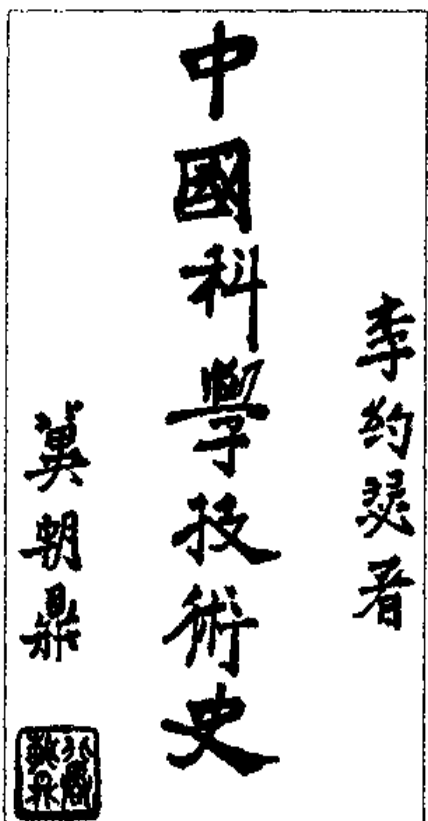 李約瑟著
中國科學技術史
冀朝鼎